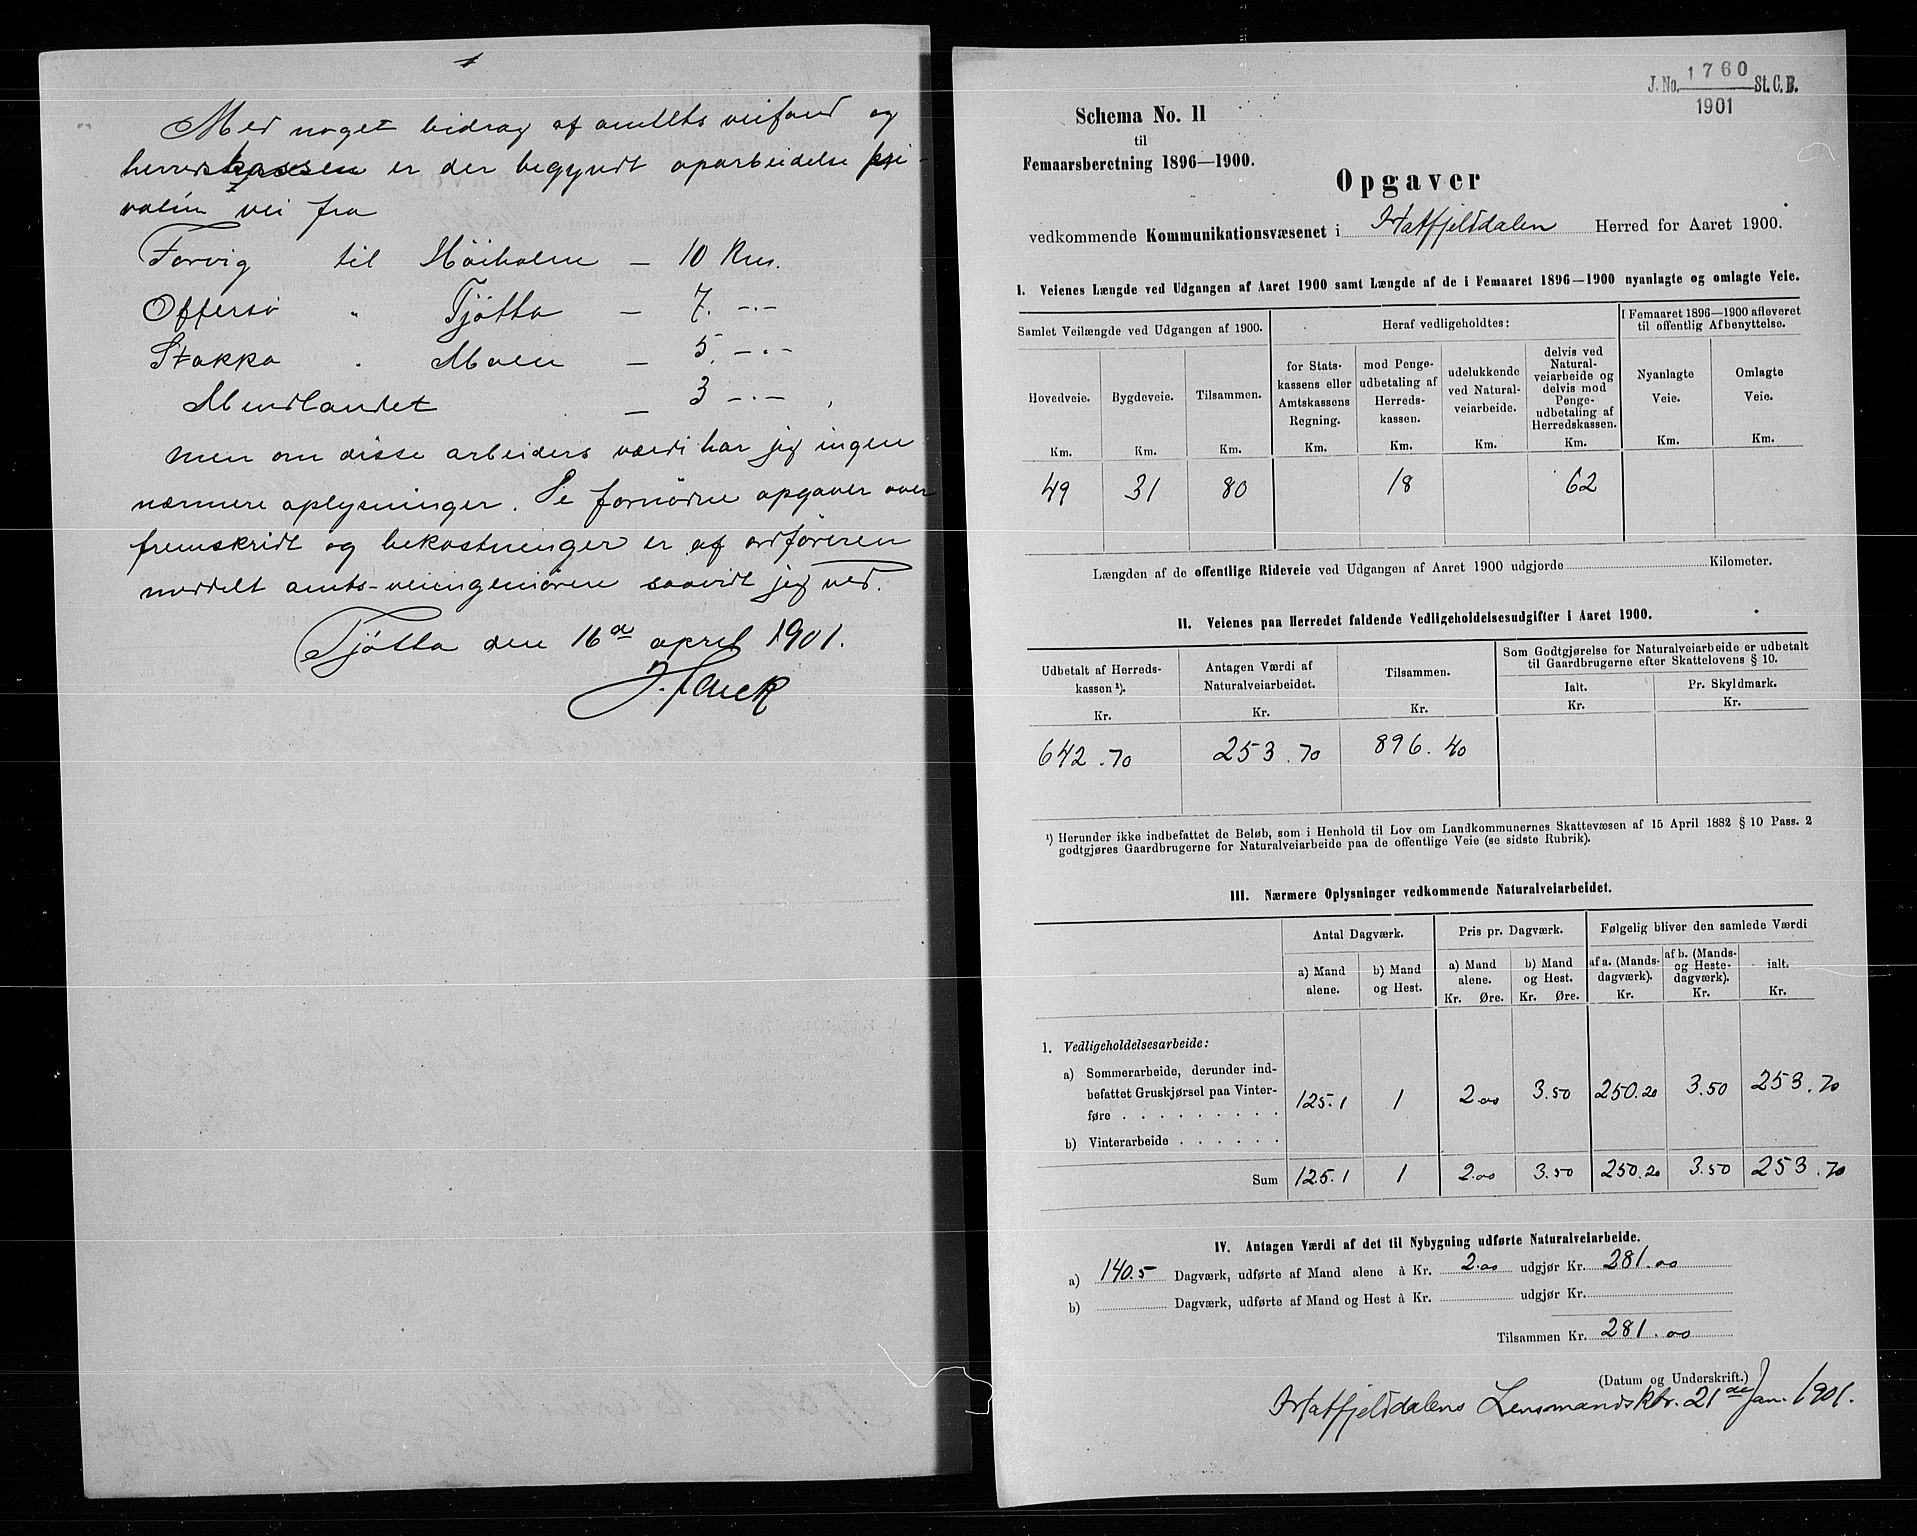 Med noget bidrag af amtets veifond og
herredskassen er der begyndt oparbeidelse pri-
vatim vei fra
Forvig til Høiholm — 10 Km.
Offersø " Tjøtta — 7. —"—
Stokka " Moen — 5. —"—
Mindlandet — 3 —"— ,
men om disse arbeiders værdi har jeg ingen
nærmere oplysninger. De fornødne opgaver over
fremskridt og bekostninger er af ordføreren
meddelt amts-veiingeniøren saavidt jeg ved.
Tjøtta den 16de april 1901.
J. No. 1760 St. C. B.
1901
Schema No. 11
til
Femaarsberetning 1896—1900.
Opgaver
vedkommende Kommunikationsvæsenet i Hatfjelddalen Herred for Aaret 1900.
I. Veienes Længde ved Udgangen af Aaret 1900 samt Længde af de i Femaaret 1896—1900 nyanlagte og omlagte Veie.
Samlet Veilængde ved Udgangen af 1900. Heraf vedligeholdtes: I Femaaret 1896—1900 afleveret til offentlig Afbenyttelse.
Hovedveie. Bygdeveie. Tilsammen. for Statskassens eller Amtskassens Regning. mod Pengeudbetaling af Herredskassen. udelukkende ved Naturalveiarbeide. delvis ved Naturalveiarbeide og delvis mod Pengeudbetaling af Herredskassen. Nyanlagte Veie. Omlagte Veie.
Km. Km. Km. Km. Km. Km. Km. Km. Km.
49 31 80 18 62
Længden af de offentlige Rideveie ved Udgangen af Aaret 1900 udgjorde Kilometer.
II. Veienes paa Herredet faldende Vedligeholdelsesudgifter i Aaret 1900.
Udbetalt af Herredskassen ¹). Antagen Værdi af Naturalveiarbeidet. Tilsammen. Som Godtgjørelse for Naturalveiarbeide er udbetalt til Gaardbrugerne efter Skattelovens § 10.
Ialt. Pr. Skyldmark.
Kr. Kr. Kr. Kr. Kr.
642.70 253.70 896.40
¹) Herunder ikke indbefattet de Beløb, som i Henhold til Lov om Landkommunernes Skattevæsen af 15 April 1882 § 10 Pass. 2
godtgjøres Gaardbrugerne for Naturalveiarbeide paa de offentlige Veie (se sidste Rubrik).
III. Nærmere Oplysninger vedkommende Naturalveiarbeidet.
Antal Dagværk. Pris pr. Dagværk. Følgelig bliver den samlede Værdi
a) Mand alene. b) Mand og Hest. a) Mand alene. b) Mand og Hest. af a. (Mandsdagværk). af b. (Mands- og Hestedagværk). ialt.
Kr. Øre. Kr. Øre. Kr. Kr. Kr.
1. Vedligeholdelsesarbeide:
a) Sommerarbeide, derunder ind-
befattet Gruskjørsel paa Vinter-
føre . . . . . . . . . 125.1 1 2.00 3.50 250.20 3.50 253.70
b) Vinterarbeide . . . . . .
Sum 125.1 1 2.00 3.50 250.20 3.50 253.70
IV. Antagen Værdi af det til Nybygning udførte Naturalveiarbeide.
a) 140.5 Dagværk, udførte af Mand alene à Kr. 2.00 udgjør Kr. 281.00
b) Dagværk, udførte af Mand og Hest à Kr. udgjør Kr.
Tilsammen Kr. 281.00
(Datum og Underskrift.)
Hatfjelddalens Lensmandsktr. 21de Jan. 1901.